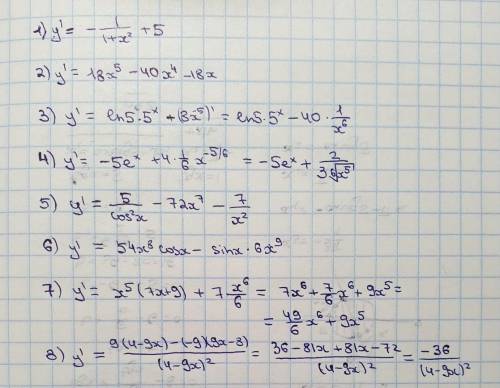 1) y' = - 1/(1+x²) + 5
2) y' = 18x⁵ - 40x⁴ - 18x
3) y' = ln5·5ˣ + (8x⁻⁵)' = ln5·5ˣ - 40 · 1/x⁶
4) y' = -5eˣ + 4 · 1/6 x^(-5/6) = -5eˣ + 2/(3 ⁶√x⁵)
5) y' = 5/cos²x - 72x⁷ - 7/x²
6) y' = 54x⁸ cosx - sinx · 6x⁹
7) y' = x⁵(7x+9) + 7 x⁶/6 = 7x⁶ + 7/6 x⁶ + 9x⁵ =
= 49/6 x⁶ + 9x⁵
8) y' = (9(4-9x) - (-9)(9x-8))/(4-9x)² = (36 - 81x + 81x - 72)/(4-9x)² = -36/(4-9x)²